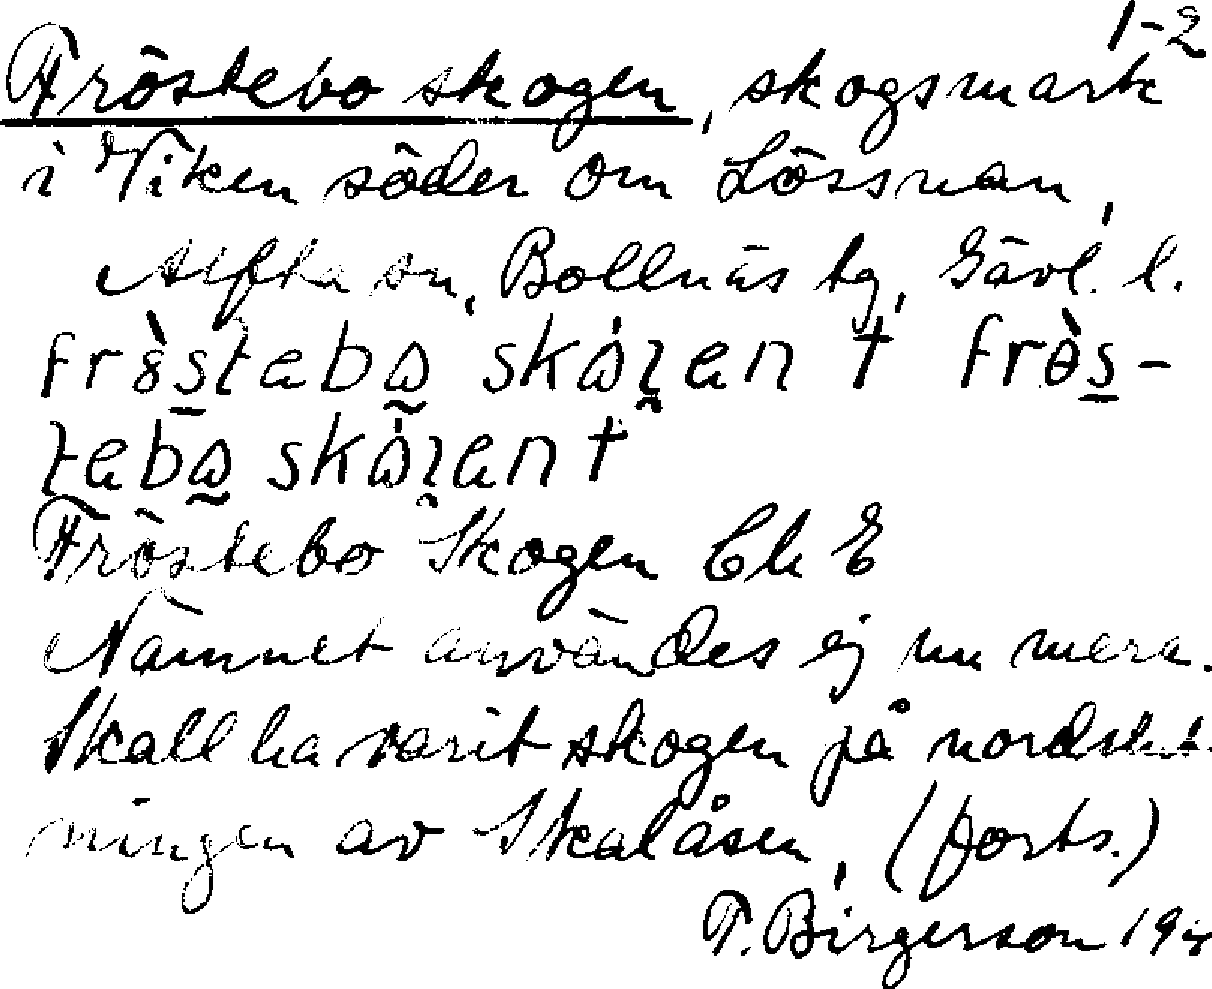 1-2
Fröstebo skogen, skogsmark
i Viken söder om Lössnan,
Alfta sn, Bollnäs tg, Gävl. l.
Fröstebo Skogen Ck E
Namnet användes ej nu mera.
Skall ha varit skogen på nordslut-
ningen av Skalåsen, (forts.)
T. Birgerson